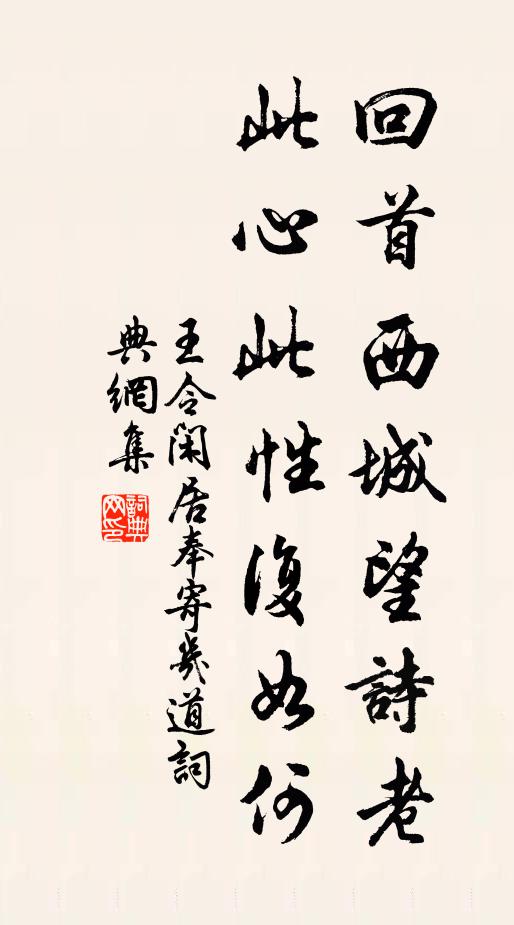 回首西城望詩老
此心此性復如何
王令閑居奉寄幾道詞
典網集
詞典網印